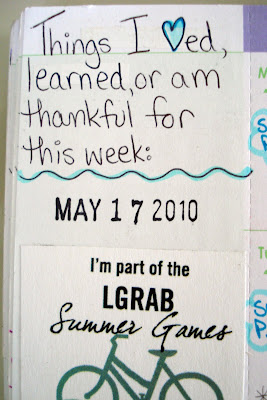 Things I ♥ed,
learned, or am
thankful for
this week:
MAY 17 2010
I'm part of the
LGRAB
Summer Games